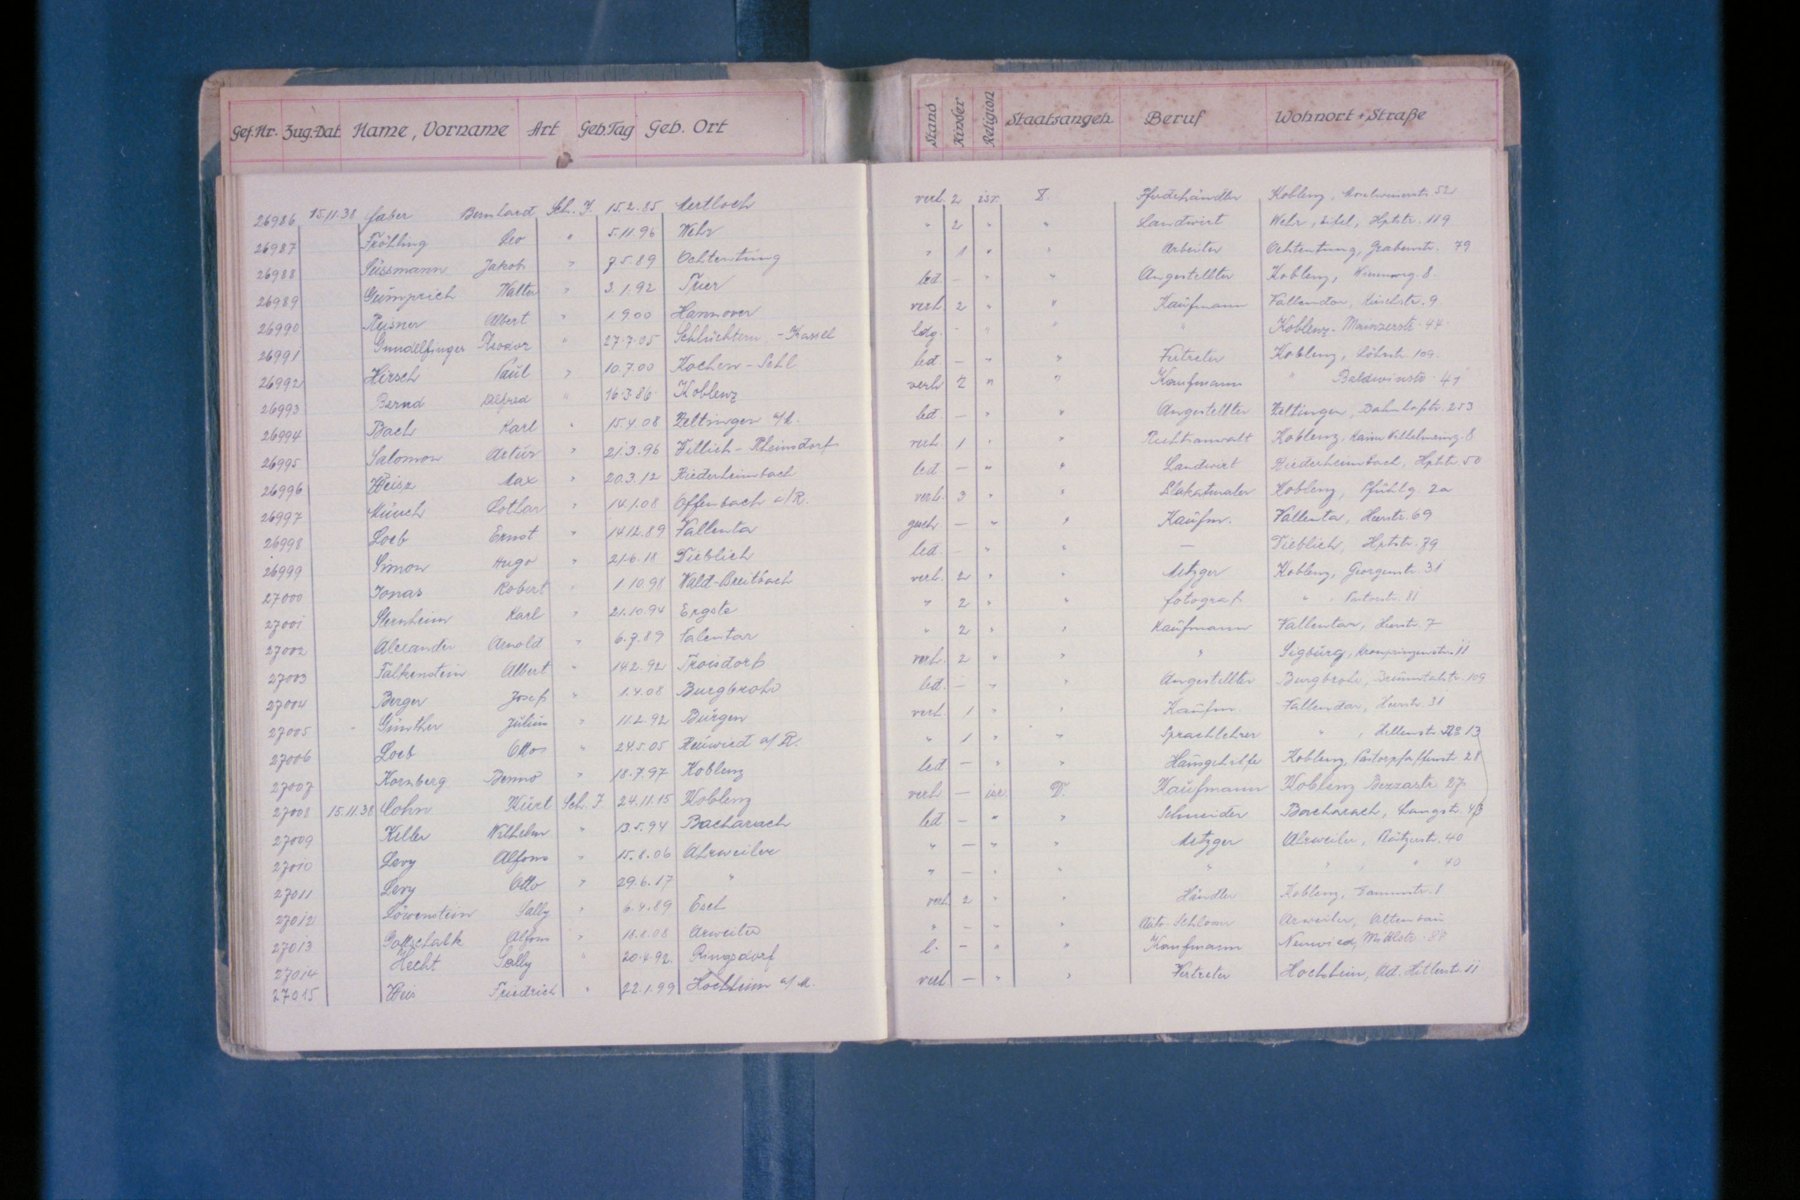 Gef.Nr. Zug.Dat. Name, Vorname Art Geb.Tag Geb. Ort Stand Kinder Religion Staatsangeh. Beruf Wohnort + Straße
26986 15.11.38 Faber Bernhard Sch. J. 15.2.85 Mertloch verh. 2 isr. Koblenz, 52
26987 Fröhling Leo " 5.11.96 Wehr " 2 " " Landwirt Wehr, Eifel, Hptstr. 119
26988 Süssmann Jakob " 7.5.89 Ochtentung " 1 " " Arbeiter Ochtentung, Grabenstr. 79
26989 Gümprich Walter " 3.1.92 Trier led. — " " Angestellter Koblenz, 8
26990 Reisner Albert " 1900 Hannover verh. 2 " " Kaufmann Vallendar, Kirchstr. 9
26991 Gundelfinger " 27.7.05 Schlüchtern - Kassel ldg. - " " " Koblenz - Mainzerstr. 44
26992 Hirsch Paul " 10.7.00 Kochem - Sehl led. — " " Vertreter Koblenz, Löhrstr. 109.
26993 Bernd Alfred " 16.3.86 Koblenz verh. 2 " " Kaufmann " Baldwinstr. 41
26994 Bach Karl " 15.4.08 Zeltingen a/M. led. — " " Angestellter Zeltingen, Bahnhofstr. 253
26995 Salomon Artur " 21.3.96 Villich - Rheindorf verh. 1 " " Rechtsanwalt Koblenz, 8
26996 Weisz Max " 20.3.12 Niederheimbach led — " " Landwirt Niederheimbach, Hptstr. 50
26997 Münch Lothar " 14.1.08 Offenbach a/R. verh. 3 " " Plakatmaler Koblenz, 2a
26998 Loeb Ernst " 14.12.89 Vallentar gesch — " " Kaufm. Vallentar, Heerstr. 69
26999 Simon Hugo " 21.6.18 Dieblich led. — " " — Dieblich, Hptstr. 79
27000 Jonas Robert " 1.10.98 Wald-Breitbach verh. 2 " " Metzger Koblenz, Georgenstr. 31
27001 Sternheim Karl " 21.10.94 Ergste " 2 " " Fotograf " 
27002 Alexander Arnold " 6.7.89 Valentar " 2 " " Kaufmann Vallentar, Heerstr. 7
27003 Falkenstein Albert " 14.2.92 Troisdorf verh. 2 " " " Sigburg, Kronprinzenstr. 11
27004 Berger Josef " 1.4.08 Burgbrohl led. — " " Angestellter Burgbrohl, 109
27005 Günther Julius " 11.2.92 Bürgen verh 1 " " Kaufm. Vallendar, Heerstr. 31
27006 Loeb Otto " 24.5.05 Neuwied a/R. " 1 " " Sprachlehrer " , 13
27007 Kornberg Benno " 18.7.97 Koblenz led — " " Hausgehilfe Koblenz, 28
27008 15.11.38 Cohn Kurt Sch. J 24.11.15 Koblenz verh — isr. D. Kaufmann Koblenz 27
27009 Keller Wilhelm " 13.5.94 Bacharach led — " " Schneider Bacharach, Langstr. 
27010 Levy Alfons " 15.8.06 Ahrweiler " — " " Metzger Ahrweiler, 40
27011 Levy Otto " 29.6.17 " " — " " " " " 40
27012 Löwenstein Sally " 6.4.89 Esch verh. 2 " " Händler Koblenz, 1
27013 Gottschalk Alfons " 18.8.08 Arweiler " — " " Auto-Schlosser Arweiler, Altenbau
27014 Hecht Sally " 20.4.92. Ringsdorf l. — " " Kaufmann Neuwied, Mittlstr. 
27015 Weis Friedrich " 22.1.99 Hochheim a/M. verh — " " Vertreter Hochheim, Ad. Hitlerstr. 11